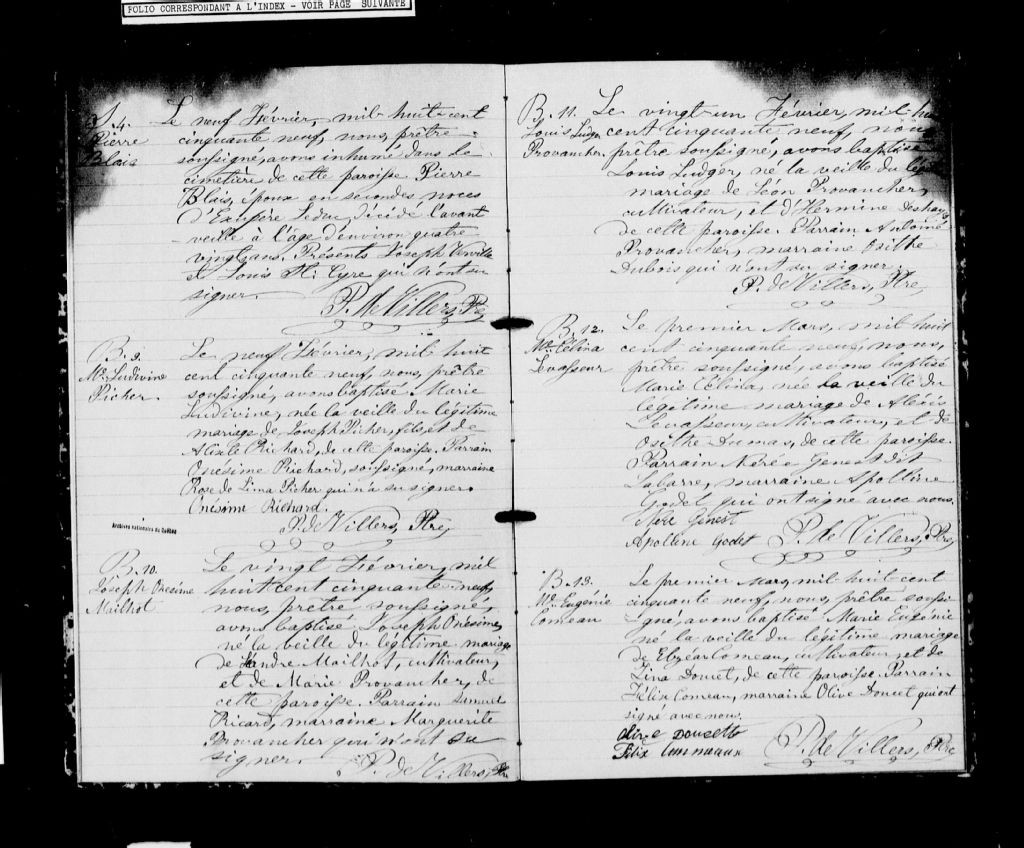 FOLIO CORRESPONDANT A L'INDEX - VOIR PAGE SUIVANTE
S. 4.
Pierre
Blais
Le neuf Février, mil huit cent
cinquante neuf, nous, prêtre
soussigné, avons inhumé dans le
cimetière de cette paroisse Pierre
Blais, époux en secondes noces
d'Exupère Leduc, décédé l'avant
veille à l'âge d'environ quatre
vingt ans. Présents Joseph Verville
et Louis St. Cyre qui n'ont su
signer.
P. de Villers, Ptre
B. 9.
Me. Ludivine
Picher.
Le neuf Février, mil huit
cent cinquante neuf, nous, prêtre
soussigné, avons baptisé Marie
Ludivine, née la veille du légitime
mariage de Joseph Picher, et de
Richard, de cette paroisse, Parrain
Onesime Richard, soussigné, marraine
Rose de Lima Picher qui n'a su signer.
Onésime Richard.
P. de Villers, Ptre,
Archives nationales du Québec
B. 10.
Joseph Onesime
Mailhot
Le vingt Février, mil
huit cent cinquante neuf,
nous, prêtre soussigné,
avons baptisé Joseph Onésime,
né la veille du légitime mariage
de Mailhot, cultivateur,
et de Marie Provancher, de
cette paroisse. Parrain Samuel
Ricard, marraine Marguerite
Provancher qui n'ont su
signer.
P. de Villers, Ptre
B. 11.
Louis Ludger
Provancher,
Le vingt-un Février, mil hui
cent cinquante neuf, nous
prêtre soussigné, avons baptisé
Louis Ludger, né la veille du
mariage de Léon Provancher,
cultivateur, et d'Hermine Deshaies
de cette paroisse. Parrain Antoine
Provancher, marraine Osithe
Dubois qui n'ont su signer.
P. de Villers, Ptre,
B. 12.
Me. Célina
Levasseur
Le premier Mars, mil huit
cent cinquante neuf, nous,
prêtre soussigné, avons baptisé
Marie Célina, née la veille du
légitime mariage de Alexis
Levasseur, cultivateur, et de
Osithe Dumas, de cette paroisse.
Parrain Néré Genest dit
Labarre, marraine Apolline
Godel qui ont signé avec nous.
Genest
Apolline Godet
P. de Villers, Ptre,
B. 13.
Me. Eugénie
Comeau
Le premier Mars, mil huit cent
cinquante neuf, nous, prêtre soussi
gné, avons baptisé Marie Eugénie
né la veille du légitime mariage
de Elzéar Comeau, cultivateur, et de
Zina Doucet, de cette paroisse. Parrain
Félix Comeau, marraine Olive Doucet qui ont
signé avec nous.
olive Doucette
Félix Commaux
P. de Villers, Ptre